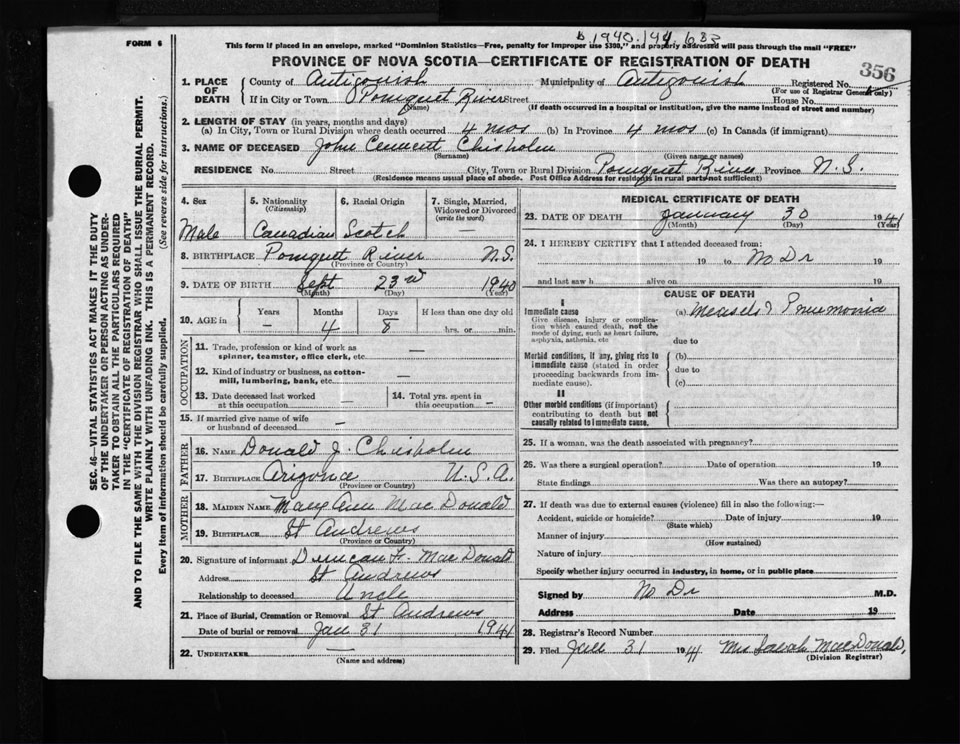 B 1940.194.683
FORM 6
This form if placed in an envelope, marked "Dominion Statistics—Free, penalty for improper use $300," and properly addressed will pass through the mail "FREE"
PROVINCE OF NOVA SCOTIA—CERTIFICATE OF REGISTRATION OF DEATH
356
1. PLACE OF DEATH County of Antigonish Municipality of Antigonish Registered No.
(For use of Registrar General only)
If in City or Town Pomquet River Street House No.
(Name) (If death occurred in a hospital or institution, give the name instead of street and number)
2. LENGTH OF STAY (in years, months and days)
(a) In City, Town or Rural Division where death occurred 4 mos (b) In Province 4 mos (c) In Canada (if immigrant)
3. NAME OF DECEASED John Chisholm
(Surname) (Given name or names)
RESIDENCE No. Street City, Town or Rural Division Pomquet River Province N.S.
(Residence means usual place of abode. Post Office Address for residents in rural parts not sufficient)
4. Sex 5. Nationality (Citizenship) 6. Racial Origin 7. Single, Married, Widowed or Divorced (write the word)
Male Canadian Scotch —
8. BIRTHPLACE Pomquet River N.S.
(Province or Country)
9. DATE OF BIRTH Sept 23rd 1940
(Month) (Day) (Year)
10. AGE in Years Months Days If less than one day old
— 4 8 hrs. or min.
OCCUPATION
11. Trade, profession or kind of work as spinner, teamster, office clerk, etc. —
12. Kind of industry or business, as cotton-mill, lumbering, bank, etc. —
13. Date deceased last worked at this occupation — 14. Total yrs. spent in this occupation —
15. If married give name of wife or husband of deceased —
FATHER
16. NAME Donald J. Chisholm
17. BIRTHPLACE Arizona U.S.A.
(Province or Country)
MOTHER
18. MAIDEN NAME Mary Ann MacDonald
19. BIRTHPLACE St Andrews
(Province or Country)
20. Signature of informant Duncan F. MacDonald
Address St Andrews
Relationship to deceased Uncle
21. Place of Burial, Cremation or Removal St Andrews
Date of burial or removal Jan 31 1941
22. UNDERTAKER —
(Name and address)
MEDICAL CERTIFICATE OF DEATH
23. DATE OF DEATH January 30 1941
(Month) (Day) (Year)
24. I HEREBY CERTIFY that I attended deceased from:
19 to No Dr 19
and last saw h alive on 19
CAUSE OF DEATH
I
Immediate cause (a) Measels & Pneumonia
Give disease, injury or complication which caused death, not the mode of dying, such as heart failure, asphyxia, asthenia, etc
due to
Morbid conditions, if any, giving rise to immediate cause (stated in order proceeding backwards from immediate cause).
(b)
due to
(c)
II
Other morbid conditions (if important) contributing to death but not causally related to immediate cause.
25. If a woman, was the death associated with pregnancy?
26. Was there a surgical operation? Date of operation 19
State findings Was there an autopsy?
27. If death was due to external causes (violence) fill in also the following:—
Accident, suicide or homicide? Date of injury 19
(State which)
Manner of injury
(How sustained)
Nature of injury
Specify whether injury occurred in industry, in home, or in public place
Signed by No Dr M.D.
Address Date 19
28. Registrar's Record Number
29. Filed Jan 31 1941 Mrs Sarah MacDonald,
(Division Registrar)
SEC. 46—VITAL STATISTICS ACT MAKES IT THE DUTY
OF THE UNDERTAKER OR PERSON ACTING AS UNDER-
TAKER TO OBTAIN ALL THE PARTICULARS REQUIRED
IN THE "CERTIFICATE OF REGISTRATION OF DEATH"
AND TO FILE THE SAME WITH THE DIVISION REGISTRAR WHO SHALL ISSUE THE BURIAL PERMIT.
WRITE PLAINLY WITH UNFADING INK. THIS IS A PERMANENT RECORD.
Every item of information should be carefully supplied. (See reverse side for instructions.)